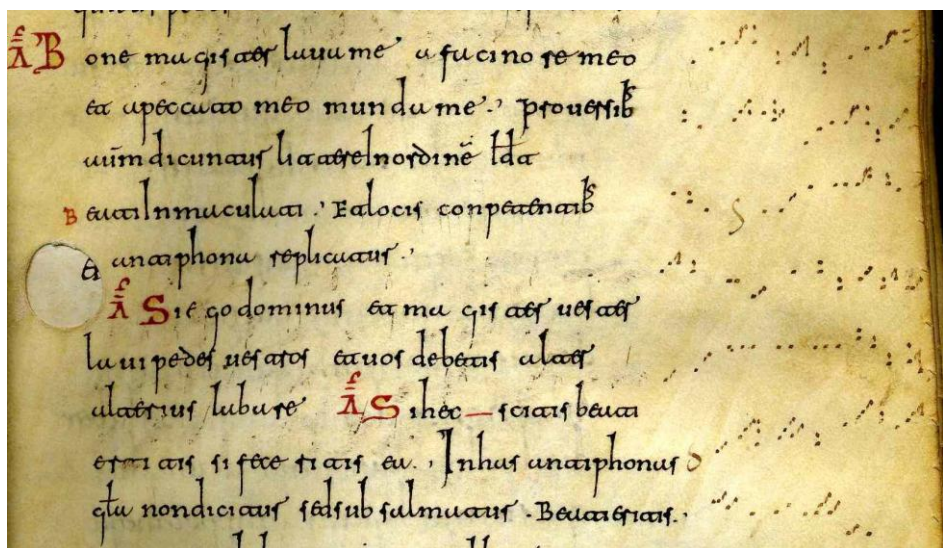 Ā Bone magister lava me a facinore meo
et a peccato meo munda me. Per versib
dicuntur In ordinē
Beati Inmaculati. Et locis conpetentib
antiphona replicatur.
Ā Si ego dominus et magister vester
lavi pedes vestros et vos debetis alter
alterius labare Ā Si hec — scitis beati
si feceritis ea. In has antiphonas
gla non dicitur sed subsalmatur. Beati eritis.